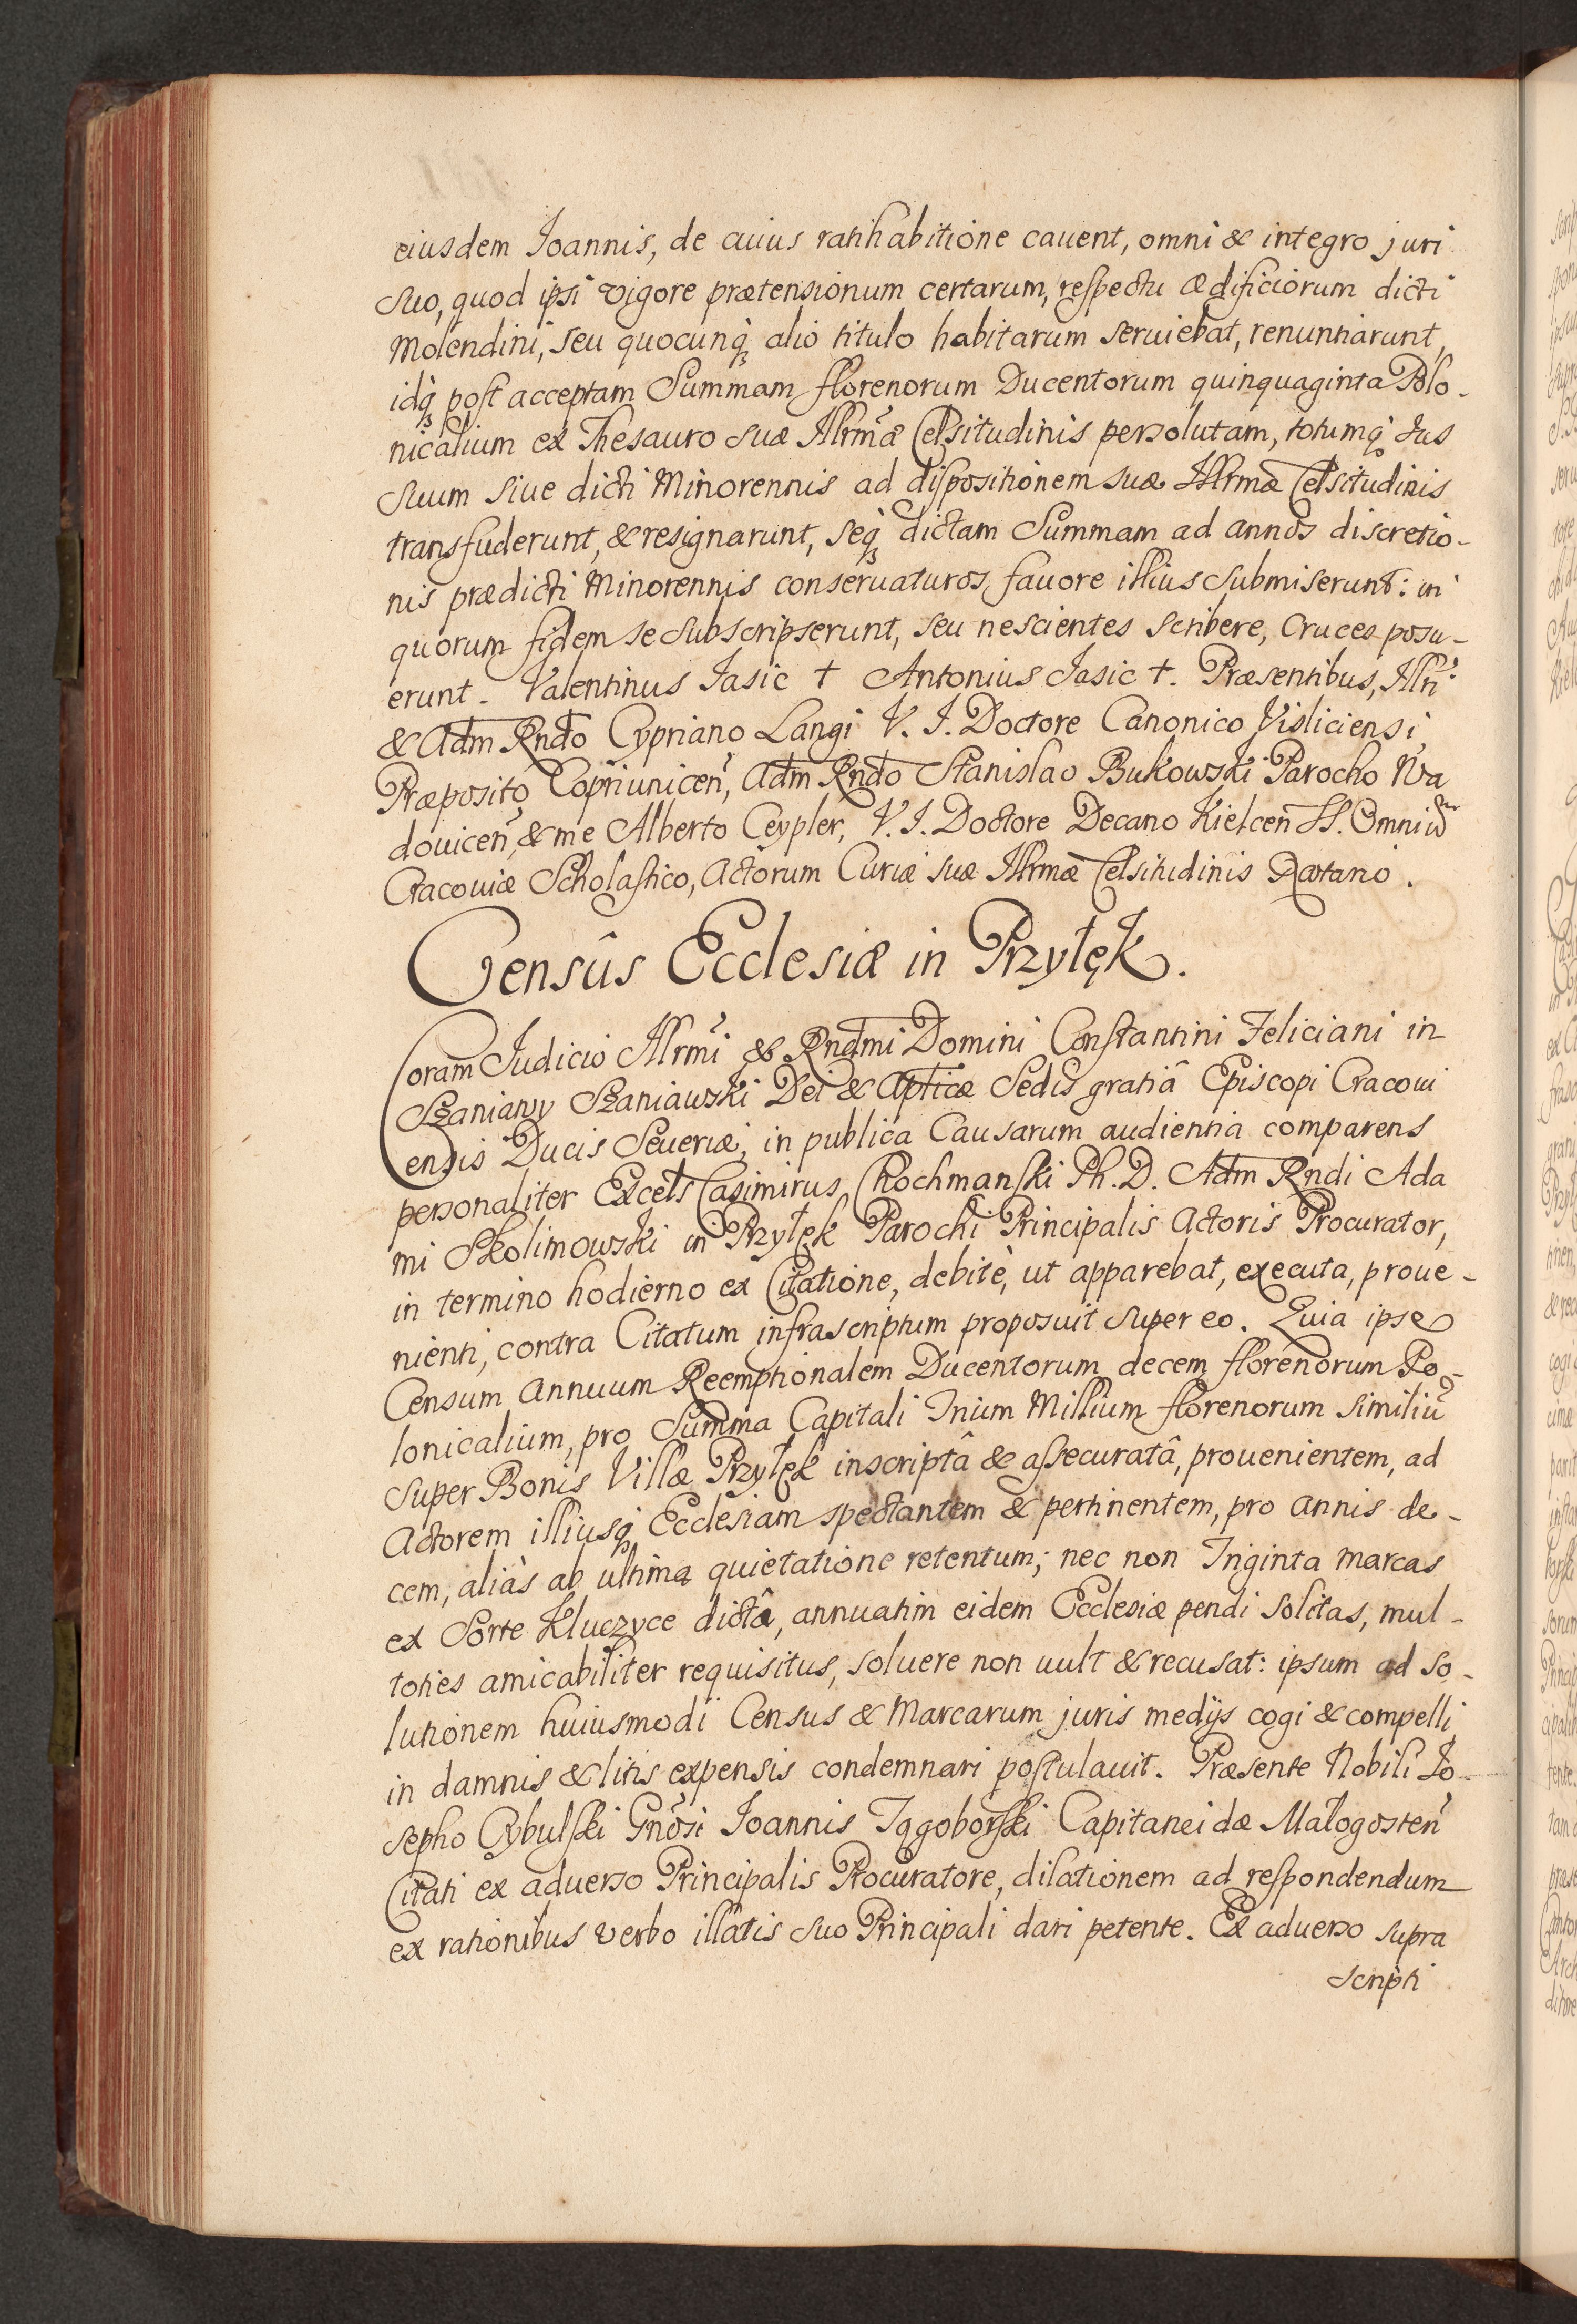 eiusdem Joannis, de cuius ratihabitione cauent, omni & integro juri
suo, quod ipsi vigore prætensionum certarum, respectu ædificiorum dicti
Molendini, seu quocunq́ꝫ alio titulo habitarum seruiebat, renuntiarunt,
idq́ꝫ post acceptam Summam florenorum Ducentorum quinquaginta Polo-
nicalium ex Thesauro suæ Illrm̃æ Celsitudinis persolutam, totumq́ꝫ Jus
suum siue dicti Minorennis ad dispositionem suæ Illrmæ Celsitudinis
transfuderunt, & resignarunt, seq́ꝫ dictam Summam ad annos discretio-
nis prædicti Minorennis conseruaturos, fauore illius submiserunt: in
quorum fidem se subscripserunt, seu nescientes scribere, Cruces posu-
erunt. Valentinus Jasic † Antonius Jasic †. Præsentibus, Illri
& Adm Rndo Cypriano Langi V. J. Doctore Canonico Visliciensi
Præposito Copriunicen̄, Adm Rndo Stanislao Bukowski Parocho Wa
douicen̄, & me Alberto Ceypler, V. J. Doctore Decano Kielcen̄ SS. Omniũ
Cracouiæ Scholastico, Actorum Curiæ suæ Illrmæ Celsitudinis Notario.
Censûs Ecclesiæ in Przyłęk.
Coram Judicio Illrm̃i & Rndmi Domini Constantini Feliciani in
Szaniawy Szaniawski Dei & Apticæ Sedis gratiâ Episcopi Cracoui
ensis Ducis Seueriæ, in publica Causarum audientia comparens
personaliter Excels Casimirus Chochmanski Ph. D. Adm Rndi Ada
mi Skolimowski in Przyłęk Parochi Principalis Actoris Procurator,
in termino hodierno ex Citatione, debitè, ut apparebat, executa, proue-
nienti, contra Citatum infrascriptum proposuit super eo. Quia ipse
Censum annuum Reemptionalem Ducentorum decem florenorum Po-
lonicalium, pro Summa Capitali Trium Millium florenorum similiũ
super Bonis Villæ Przyłęk inscriptâ & assecuratâ, prouenientem, ad
Actorem illiusq́ꝫ Ecclesiam spectantem & pertinentem, pro annis de-
cem, aliàs ab ultima quietatione retentum; nec non Triginta marcas
ex Sorte Kluczyce dictâ, annuatim eidem Ecclesiæ pendi solitas, mul-
toties amicabiliter requisitus, soluere non uult & recusat: ipsum ad so-
lutionem huiusmodi Census & Marcarum juris medijs cogi & compelli
in damnis & litis expensis condemnari postulauit. Præsente Nobili Jo-
sepho Cybulski Gnõsi Joannis Jggoborski Capitaneidæ Małogosten̄
Citati ex aduerso Principalis Procuratore, dilationem ad respondendum
ex rationibus verbo illatis suo Principali dari petente. Ex aduerso supra
scripti